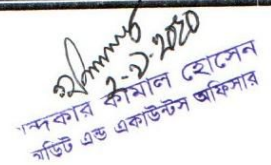 ২-৯-২০২০
ন্দকার কামাল হোসেন
অডিট এন্ড একাউন্টস অফিসার